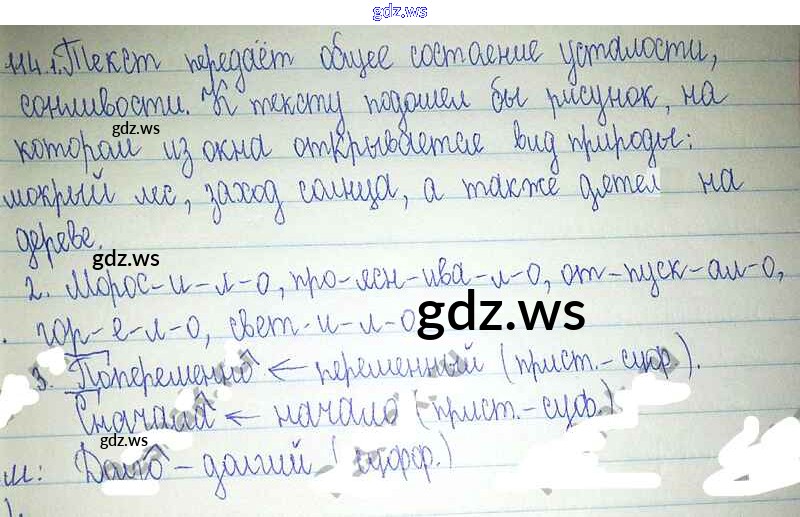 gdz.ws
114.1. Текст передаёт общее состаение усталости,
сонливости. К тексту подошел бы рисунок, на
gdz.ws
котором из окна открывается вид природы:
мокрый лес, заход солнца, а также дятел на
дереве.
gdz.ws
2. Морос-и-л-о, про-ясн-ива-л-о, от-пуск-ал-о,
гор-е-л-о, свет-и-л-о
gdz.ws
3. Попеременно ← переменный (прист.-суф.).
Сначала ← начало (прист.-суф.)
gdz.ws
Долго - долгий (суфф.)